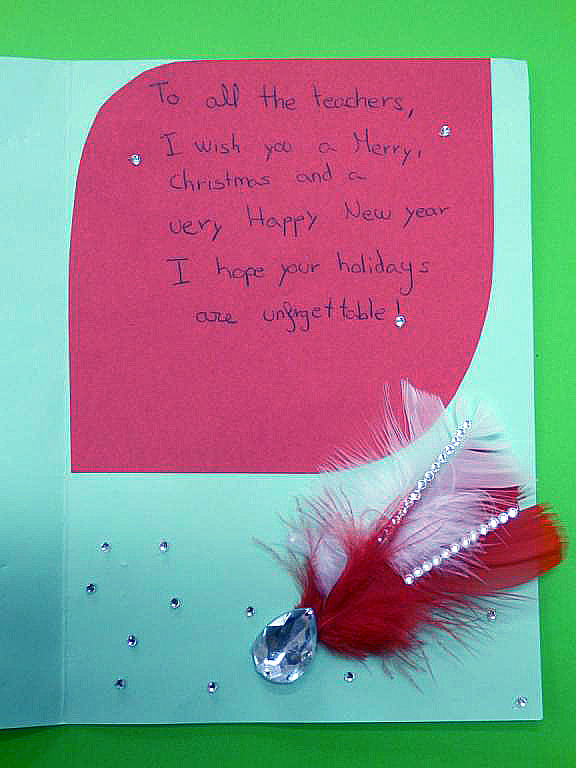 To all the teachers,
I wish you a Merry,
Christmas and a
very Happy New year
I hope your holidays
are unforgettable!